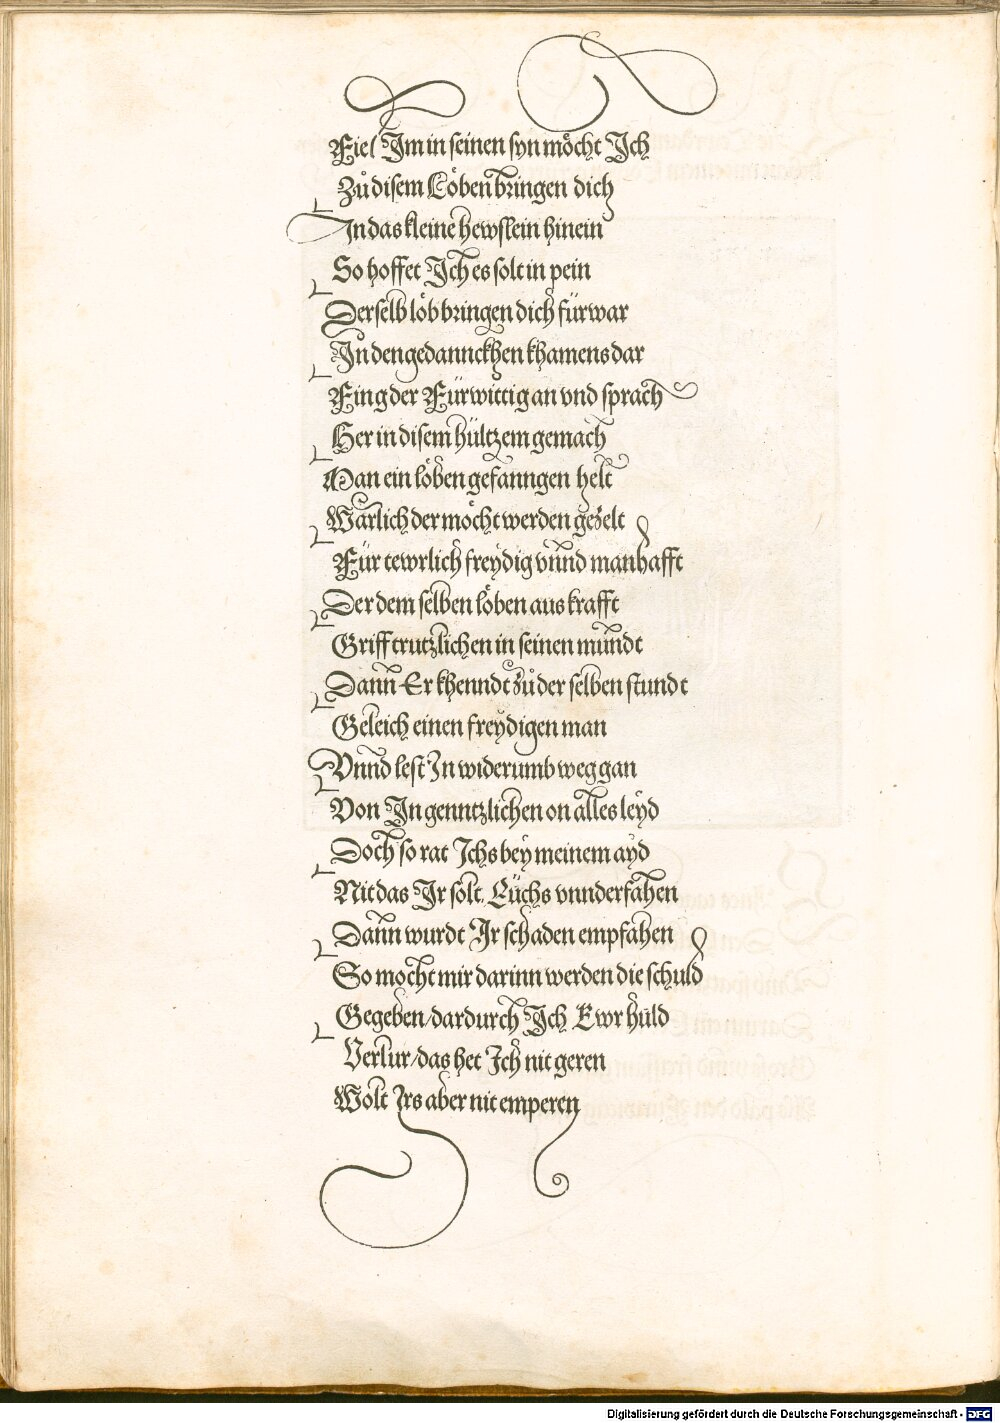 Fiel Im in seinen syn möcht Ich
Zů disem Löben bringen dich
In das kleine hewslein hinein
So hoffet Ich es solt in pein
Derselb löb bringen dich fürwar
In den gedannckhen kham ens dar
Fing der Fürwittig an vnd sprach
Her in disem hültzem gemach
Man ein löben gefanngen helt
Warlich der möcht werden gezelt
Für tewrlich freydig vnnd manhafft
Der dem selben löben aus krafft
Griff trutzlichen in seinen mundt
Dann Er khenndt zů der selben stundt
Geleich einen freydigen man
Vnnd lest In widerumb weg gan
Von In genntzlichen on alles leyd
Doch so rat Ichs bey meinem ayd
Nit das Ir solt Euchs vnnderfahen
Dann wurdt Ir schaden empfahen
So mocht mir darinn werden die schuld
Gegeben/dardurch Ich Ewr huld
Verlur/das het Ich nit geren
Wolt Irs aber nit emperen
Digitalisierung gefördert durch die Deutsche Forschungsgemeinschaft - DFG